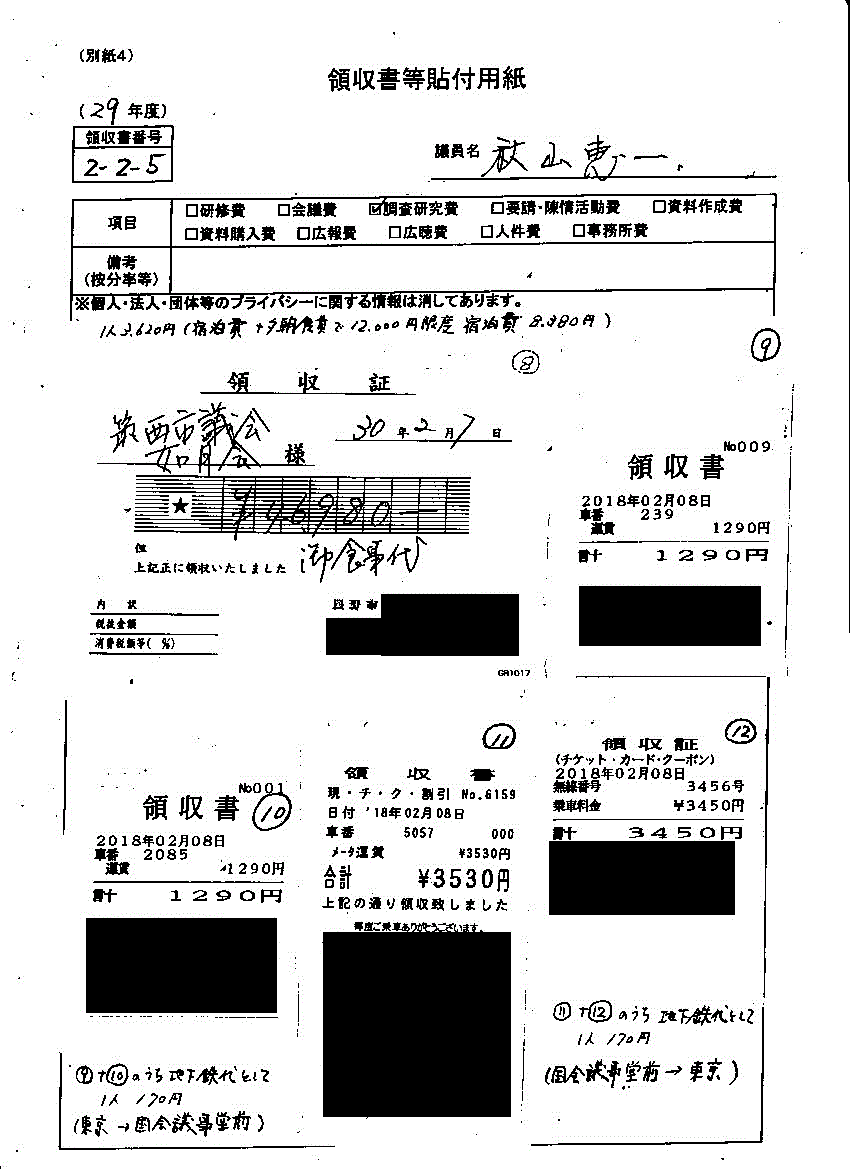 (別紙4)
領収書等貼付用紙
(29 年度)
領収書番号
2-2-5
議員名 秋山恵一
項目
□研修費 □会議費 ☑調査研究費 □要請・陳情活動費 □資料作成費
□資料購入費 □広報費 □広聴費 □人件費 □事務所費
備考
(按分率等)
※個人・法人・団体等のプライバシーに関する情報は消してあります。
1人3,620円(宿泊費+夕朝食費で12,000円限度 宿泊費 8,380円)
⑧
領 収 証
筑西市議会
如月会 様
30年2月7日
★ ¥46980-
但 御食事代
上記正に領収いたしました
内 訳
税抜金額
消費税額等( %)
長野市
GR1017
⑨
No009
領収書
2018年02月08日
車番 239
運賃 1290円
合計 1290円
No001
領収書 ⑩
2018年02月08日
車番 2085
運賃 1290円
合計 1290円
⑨+⑩のうち地下鉄代として
1人 170円
(東京→国会議事堂前)
⑪
領 収 書
現・チ・ク・割引 No.6159
日付 '18年02月08日
車番 5057 000
メータ運賃 ¥3530円
合計 ¥3530円
上記の通り領収致しました
毎度ご乗車ありがとうございます。
⑫
領収証
(チケット・カード・クーポン)
2018年02月08日
無線番号 3456号
乗車料金 ¥3450円
合計 3450円
⑪+⑫のうち 地下鉄代として
1人 170円
(国会議事堂前→東京)